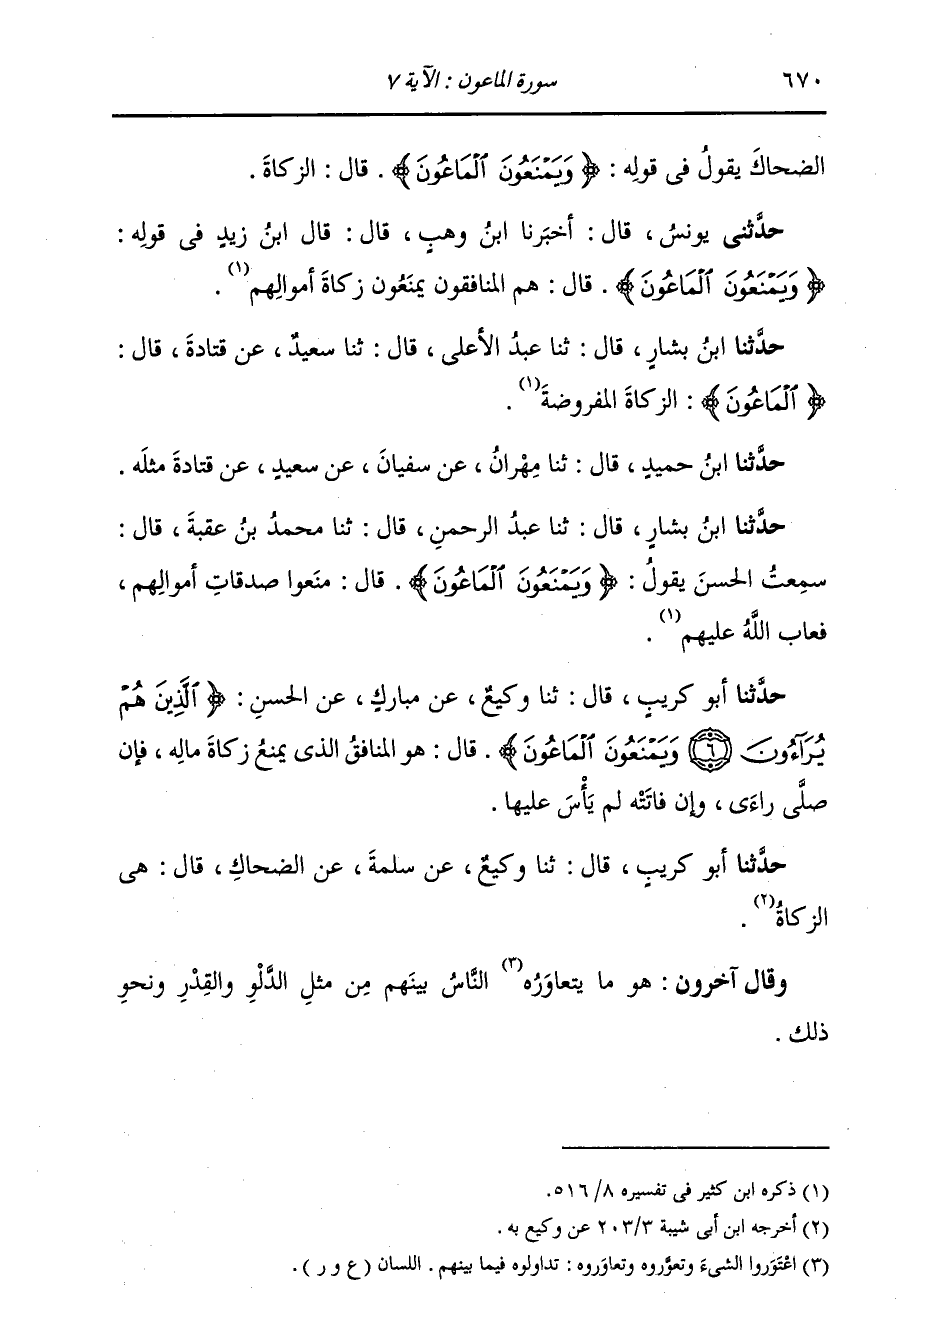 ٦٧٠ سورة الماعون : الآية ٧
الضحاكَ يقولُ فى قولِه : ﴿ وَيَمْنَعُونَ ٱلْمَاعُونَ ﴾ . قال : الزكاةَ .
حدَّثنى يونسُ ، قال : أخبَرنا ابنُ وهبٍ ، قال : قال ابنُ زيدٍ فى قولِه :
﴿ وَيَمْنَعُونَ ٱلْمَاعُونَ ﴾ . قال : هم المنافقون يمنَعُون زكاةَ أموالِهم(١) .
حدَّثنا ابنُ بشارٍ ، قال : ثنا عبدُ الأعلى ، قال : ثنا سعيدٌ ، عن قتادةَ ، قال :
﴿ ٱلْمَاعُونَ ﴾ : الزكاةَ المفروضةَ(١) .
حدَّثنا ابنُ حميدٍ ، قال : ثنا مِهْرانُ ، عن سفيانَ ، عن سعيدٍ ، عن قتادةَ مثلَه .
حدَّثنا ابنُ بشارٍ ، قال : ثنا عبدُ الرحمنِ ، قال : ثنا محمدُ بنُ عقبةَ ، قال :
سمِعتُ الحسنَ يقولُ : ﴿ وَيَمْنَعُونَ ٱلْمَاعُونَ ﴾ . قال : منَعوا صدقاتِ أموالِهم ،
فعاب اللَّهُ عليهم(١) .
حدَّثنا أبو كريبٍ ، قال : ثنا وكيعٌ ، عن مباركٍ ، عن الحسنِ : ﴿ ٱلَّذِينَ هُمْ
يُرَآءُونَ ٦ وَيَمْنَعُونَ ٱلْمَاعُونَ ﴾ . قال : هو المنافقُ الذى يمنعُ زكاةَ مالِه ، فإن
صلَّى راءَى ، وإن فاتَتْه لم يَأْسَ عليها .
حدَّثنا أبو كريبٍ ، قال : ثنا وكيعٌ ، عن سلمةَ ، عن الضحاكِ ، قال : هى
الزكاةُ(٢) .
وقال آخرون : هو ما يتعاوَرُه(٣) النَّاسُ بينَهم مِن مثلِ الدَّلْوِ والقِدْرِ ونحوِ
ذلك .
(١) ذكره ابن كثير فى تفسيره ٨/ ٥١٦.
(٢) أخرجه ابن أبى شيبة ٢٠٣/٣ عن وكيع به .
(٣) اعْتَوَروا الشىءَ وتعوَّروه وتعاوَروه : تداولوه فيما بينهم . اللسان (ع و ر ) .